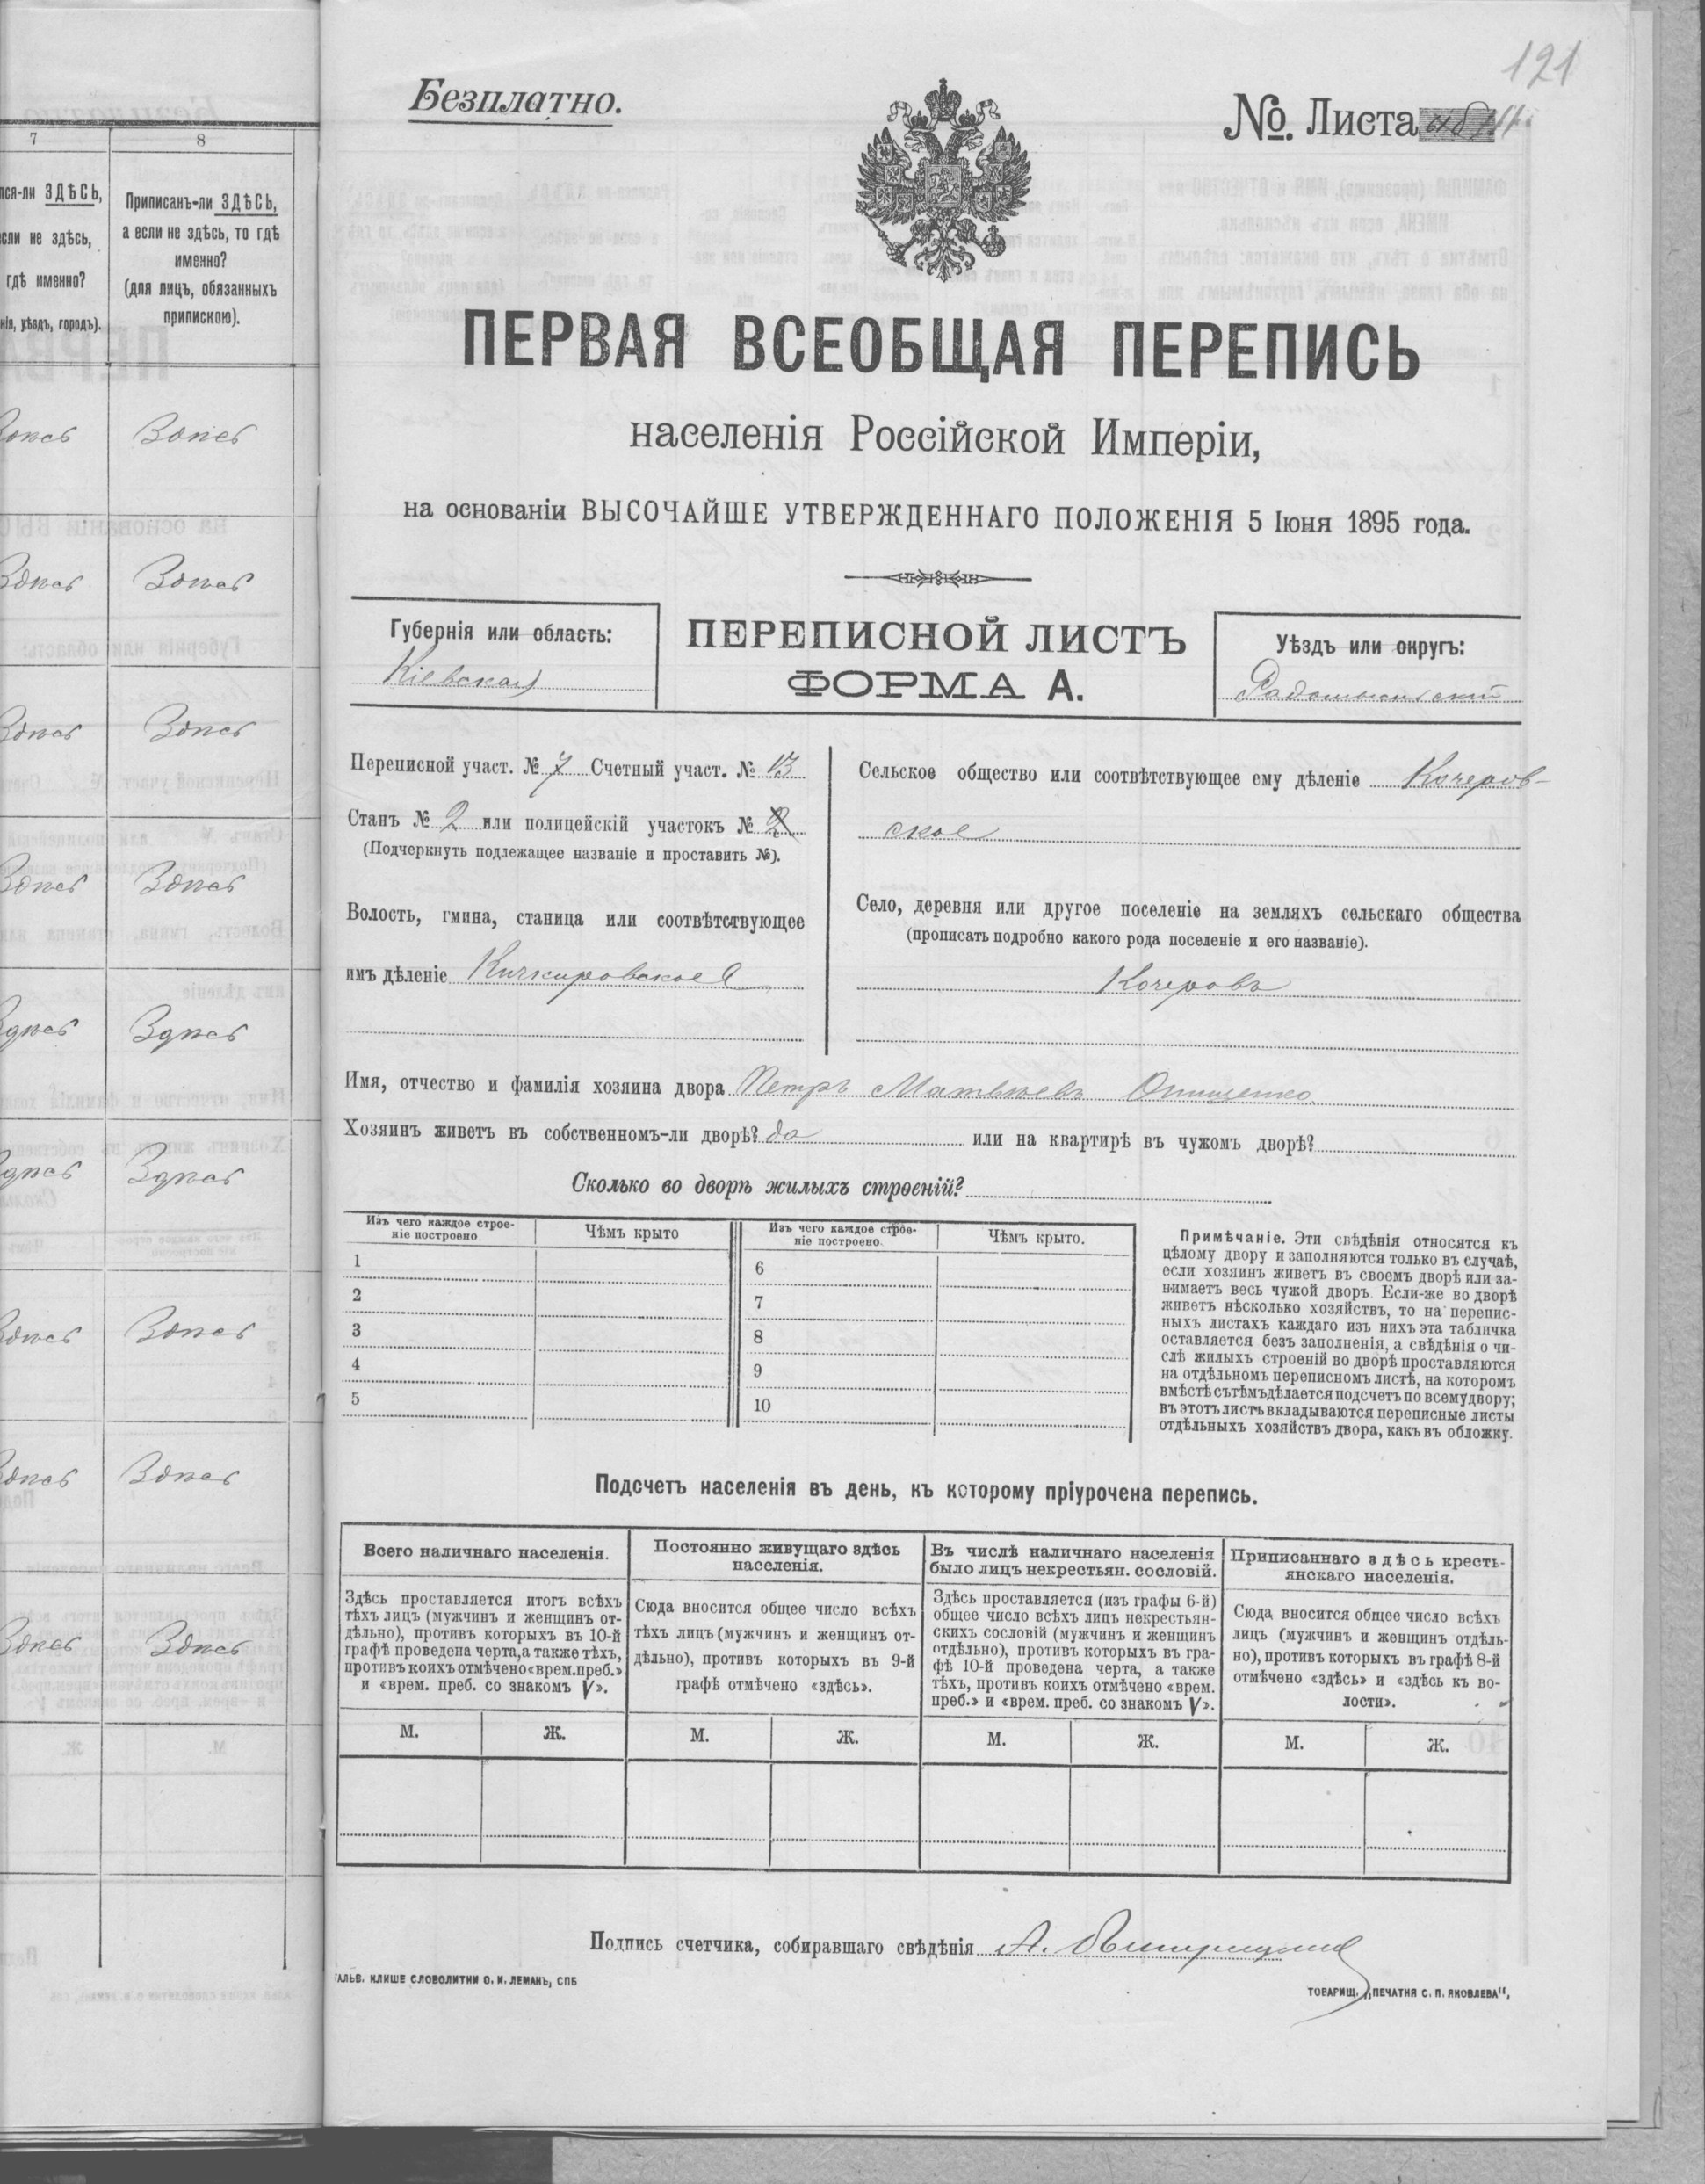 7
8
ся-ли ЗДѢСЬ,
если не здѣсь,
гдѣ именно?
нія, уѣздъ, городъ).
Приписанъ-ли ЗДѢСЬ,
а если не здѣсь, то гдѣ
именно?
(для лицъ, обязанныхъ
припискою).
Здѣсь Здѣсь
Здѣсь Здѣсь
Здѣсь Здѣсь
Здѣсь Здѣсь
Здѣсь Здѣсь
Здѣсь Здѣсь
Здѣсь Здѣсь
Здѣсь Здѣсь
Здѣсь Здѣсь
121
Безплатно.
№. Листа
ПЕРВАЯ ВСЕОБЩАЯ ПЕРЕПИСЬ
населенія Россійской Имперіи,
на основаніи ВЫСОЧАЙШЕ УТВЕРЖДЕННАГО ПОЛОЖЕНІЯ 5 Іюня 1895 года.
Губернія или область:
Кіевская
ПЕРЕПИСНОЙ ЛИСТЪ
ФОРМА А.
Уѣздъ или округъ:
Радомысльскій
Переписной участ. № 7 Счетный участ. № 13
Станъ № 2 или полицейскій участокъ № 2
(Подчеркнуть подлежащее названіе и проставить №).
Волость, гмина, станица или соотвѣтствующее
имъ дѣленіе
Сельское общество или соотвѣтствующее ему дѣленіе Кочеров-
ское
Село, деревня или другое поселеніе на земляхъ сельскаго общества
(прописать подробно какого рода поселеніе и его названіе).
Кочеровъ
Имя, отчество и фамилія хозяина двора Петръ Матвѣевъ Онищенко
Хозяинъ живетъ въ собственномъ-ли дворѣ? да или на квартирѣ въ чужомъ дворѣ?
Сколько во дворѣ жилыхъ строеній?
Изъ чего каждое строе-
ніе построено
Чѣмъ крыто
Изъ чего каждое строе-
ніе построено.
Чѣмъ крыто.
1
2
3
4
5
6
7
8
9
10
Примѣчаніе. Эти свѣдѣнія относятся къ
цѣлому двору и заполняются только въ случаѣ,
если хозяинъ живетъ въ своемъ дворѣ или за-
нимаетъ весь чужой дворъ. Если-же во дворѣ
живетъ нѣсколько хозяйствъ, то на перепис-
ныхъ листахъ каждаго изъ нихъ эта табличка
оставляется безъ заполненія, а свѣдѣнія о чи-
слѣ жилыхъ строеній во дворѣ проставляются
на отдѣльномъ переписномъ листѣ, на которомъ
вмѣстѣ съ тѣмъ дѣлается подсчетъ по всему двору;
въ этотъ листъ вкладываются переписные листы
отдѣльныхъ хозяйствъ двора, какъ въ обложку.
Подсчетъ населенія въ день, къ которому пріурочена перепись.
Всего наличнаго населенія.
Здѣсь проставляется итогъ всѣхъ
тѣхъ лицъ (мужчинъ и женщинъ от-
дѣльно), противъ которыхъ въ 10-й
графѣ проведена черта, а также тѣхъ,
противъ коихъ отмѣчено «врем. преб.»
и «врем. преб. со знакомъ V».
М. Ж.
Постоянно живущаго здѣсь
населенія.
Сюда вносится общее число всѣхъ
тѣхъ лицъ (мужчинъ и женщинъ от-
дѣльно), противъ которыхъ въ 9-й
графѣ отмѣчено «здѣсь».
М. Ж.
Въ числѣ наличнаго населенія
было лицъ некрестьян. сословій.
Здѣсь проставляется (изъ графы 6-й)
общее число всѣхъ лицъ некрестьян-
скихъ сословій (мужчинъ и женщинъ
отдѣльно), противъ которыхъ въ гра-
фѣ 10-й проведена черта, а также
тѣхъ, противъ коихъ отмѣчено «врем.
преб.» и «врем. преб. со знакомъ V».
М. Ж.
Приписаннаго здѣсь кресть-
янскаго населенія.
Сюда вносится общее число всѣхъ
лицъ (мужчинъ и женщинъ отдѣль-
но), противъ которыхъ въ графѣ 8-й
отмѣчено «здѣсь» и «здѣсь къ во-
лости».
М. Ж.
Подпись счетчика, собиравшаго свѣдѣнія А.
ГАЛЬВ. КЛИШЕ СЛОВОЛИТНИ О. И. ЛЕМАНЪ, СПБ
ТОВАРИЩ. „ПЕЧАТНЯ С. П. ЯКОВЛЕВА“,